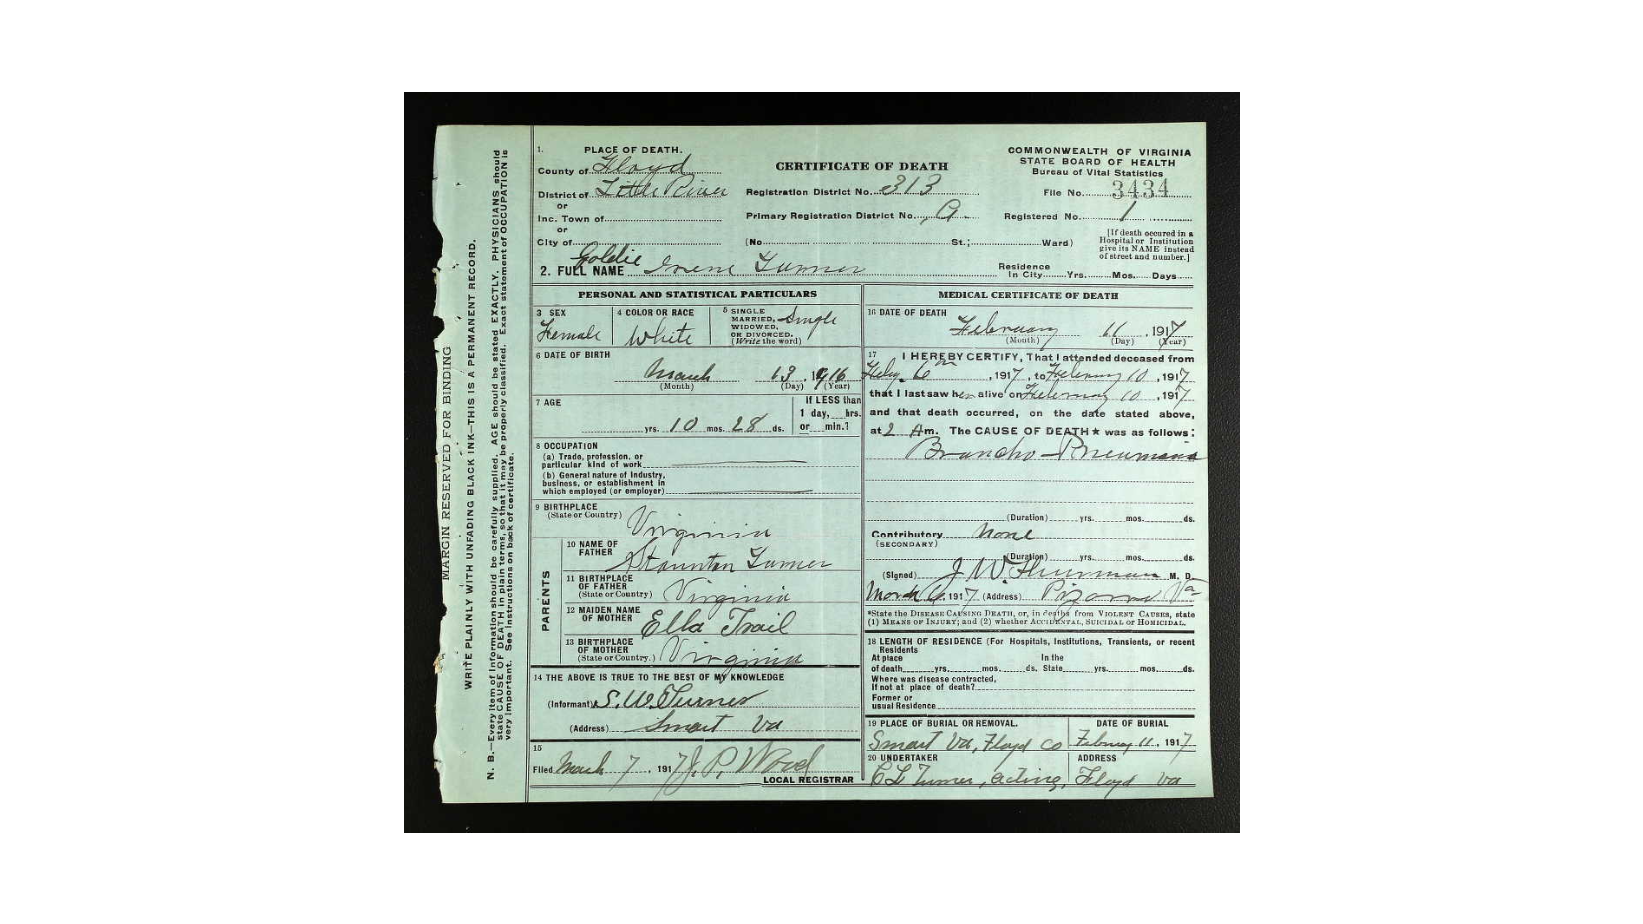 1. PLACE OF DEATH.
County of Floyd
District of Little River
or
Inc. Town of
or
City of
CERTIFICATE OF DEATH
Registration District No. 313
Primary Registration District No. A
(No St.; Ward)
COMMONWEALTH OF VIRGINIA
STATE BOARD OF HEALTH
Bureau of Vital Statistics
File No. 3434
Registered No. 1
[If death occured in a
Hospital or Institution
give its NAME instead
of street and number.]
2. FULL NAME Goldie Irene Turner
Residence
In City Yrs. Mos. Days
PERSONAL AND STATISTICAL PARTICULARS
3 SEX
Female
4 COLOR OR RACE
White
5 SINGLE
MARRIED,
WIDOWED,
OR DIVORCED.
(Write the word)
Single
6 DATE OF BIRTH
March 13, 1916
(Month) (Day) (Year)
7 AGE
yrs. 10 mos. 28 ds.
If LESS than
1 day, hrs.
or min.?
8 OCCUPATION
(a) Trade, profession, or
particular kind of work
(b) General nature of Industry,
business, or establishment in
which employed (or employer)
9 BIRTHPLACE
(State or Country)
Virginia
PARENTS
10 NAME OF
FATHER
Staunton Turner
11 BIRTHPLACE
OF FATHER
(State or Country)
Virginia
12 MAIDEN NAME
OF MOTHER
Ella Trail
13 BIRTHPLACE
OF MOTHER
(State or Country.)
Virginia
14 THE ABOVE IS TRUE TO THE BEST OF MY KNOWLEDGE
(Informant) S. W. Turner
(Address) Smart Va
15
Filed March 7, 1917 J. P. Wood
LOCAL REGISTRAR
MEDICAL CERTIFICATE OF DEATH
16 DATE OF DEATH
February 11, 1917
(Month) (Day) (Year)
17 I HEREBY CERTIFY, That I attended deceased from
Feby. 6th, 1917, to February 10, 1917
that I last saw her alive on February 10, 1917
and that death occurred, on the date stated above,
at 2 Am. The CAUSE OF DEATH★ was as follows:
Broncho-Pneumonia
(Duration) yrs. mos. ds.
Contributory None
(SECONDARY)
(Duration) yrs. mos. ds.
(Signed) J. W. Thurman M. D.
March 6, 1917 (Address) Pizarro Va
*State the DISEASE CAUSING DEATH, or, in deaths from VIOLENT CAUSES, state
(1) MEANS OF INJURY; and (2) whether ACCIDENTAL, SUICIDAL or HOMICIDAL.
18 LENGTH OF RESIDENCE (For Hospitals, Institutions, Transients, or recent
Residents
At place In the
of death yrs. mos. ds. State yrs. mos. ds.
Where was disease contracted,
If not at place of death?
Former or
usual Residence
19 PLACE OF BURIAL OR REMOVAL.
Smart Va, Floyd co
DATE OF BURIAL
February 11, 1917
20 UNDERTAKER
C L Turner, acting,
ADDRESS
Floyd Va
MARGIN RESERVED FOR BINDING
WRITE PLAINLY WITH UNFADING BLACK INK—THIS IS A PERMANENT RECORD.
N. B.—Every item of information should be carefully supplied. AGE should be stated EXACTLY. PHYSICIANS should
state CAUSE OF DEATH in plain terms, so that it may be properly classified. Exact statement of OCCUPATION is
very important. See Instructions on back of certificate.